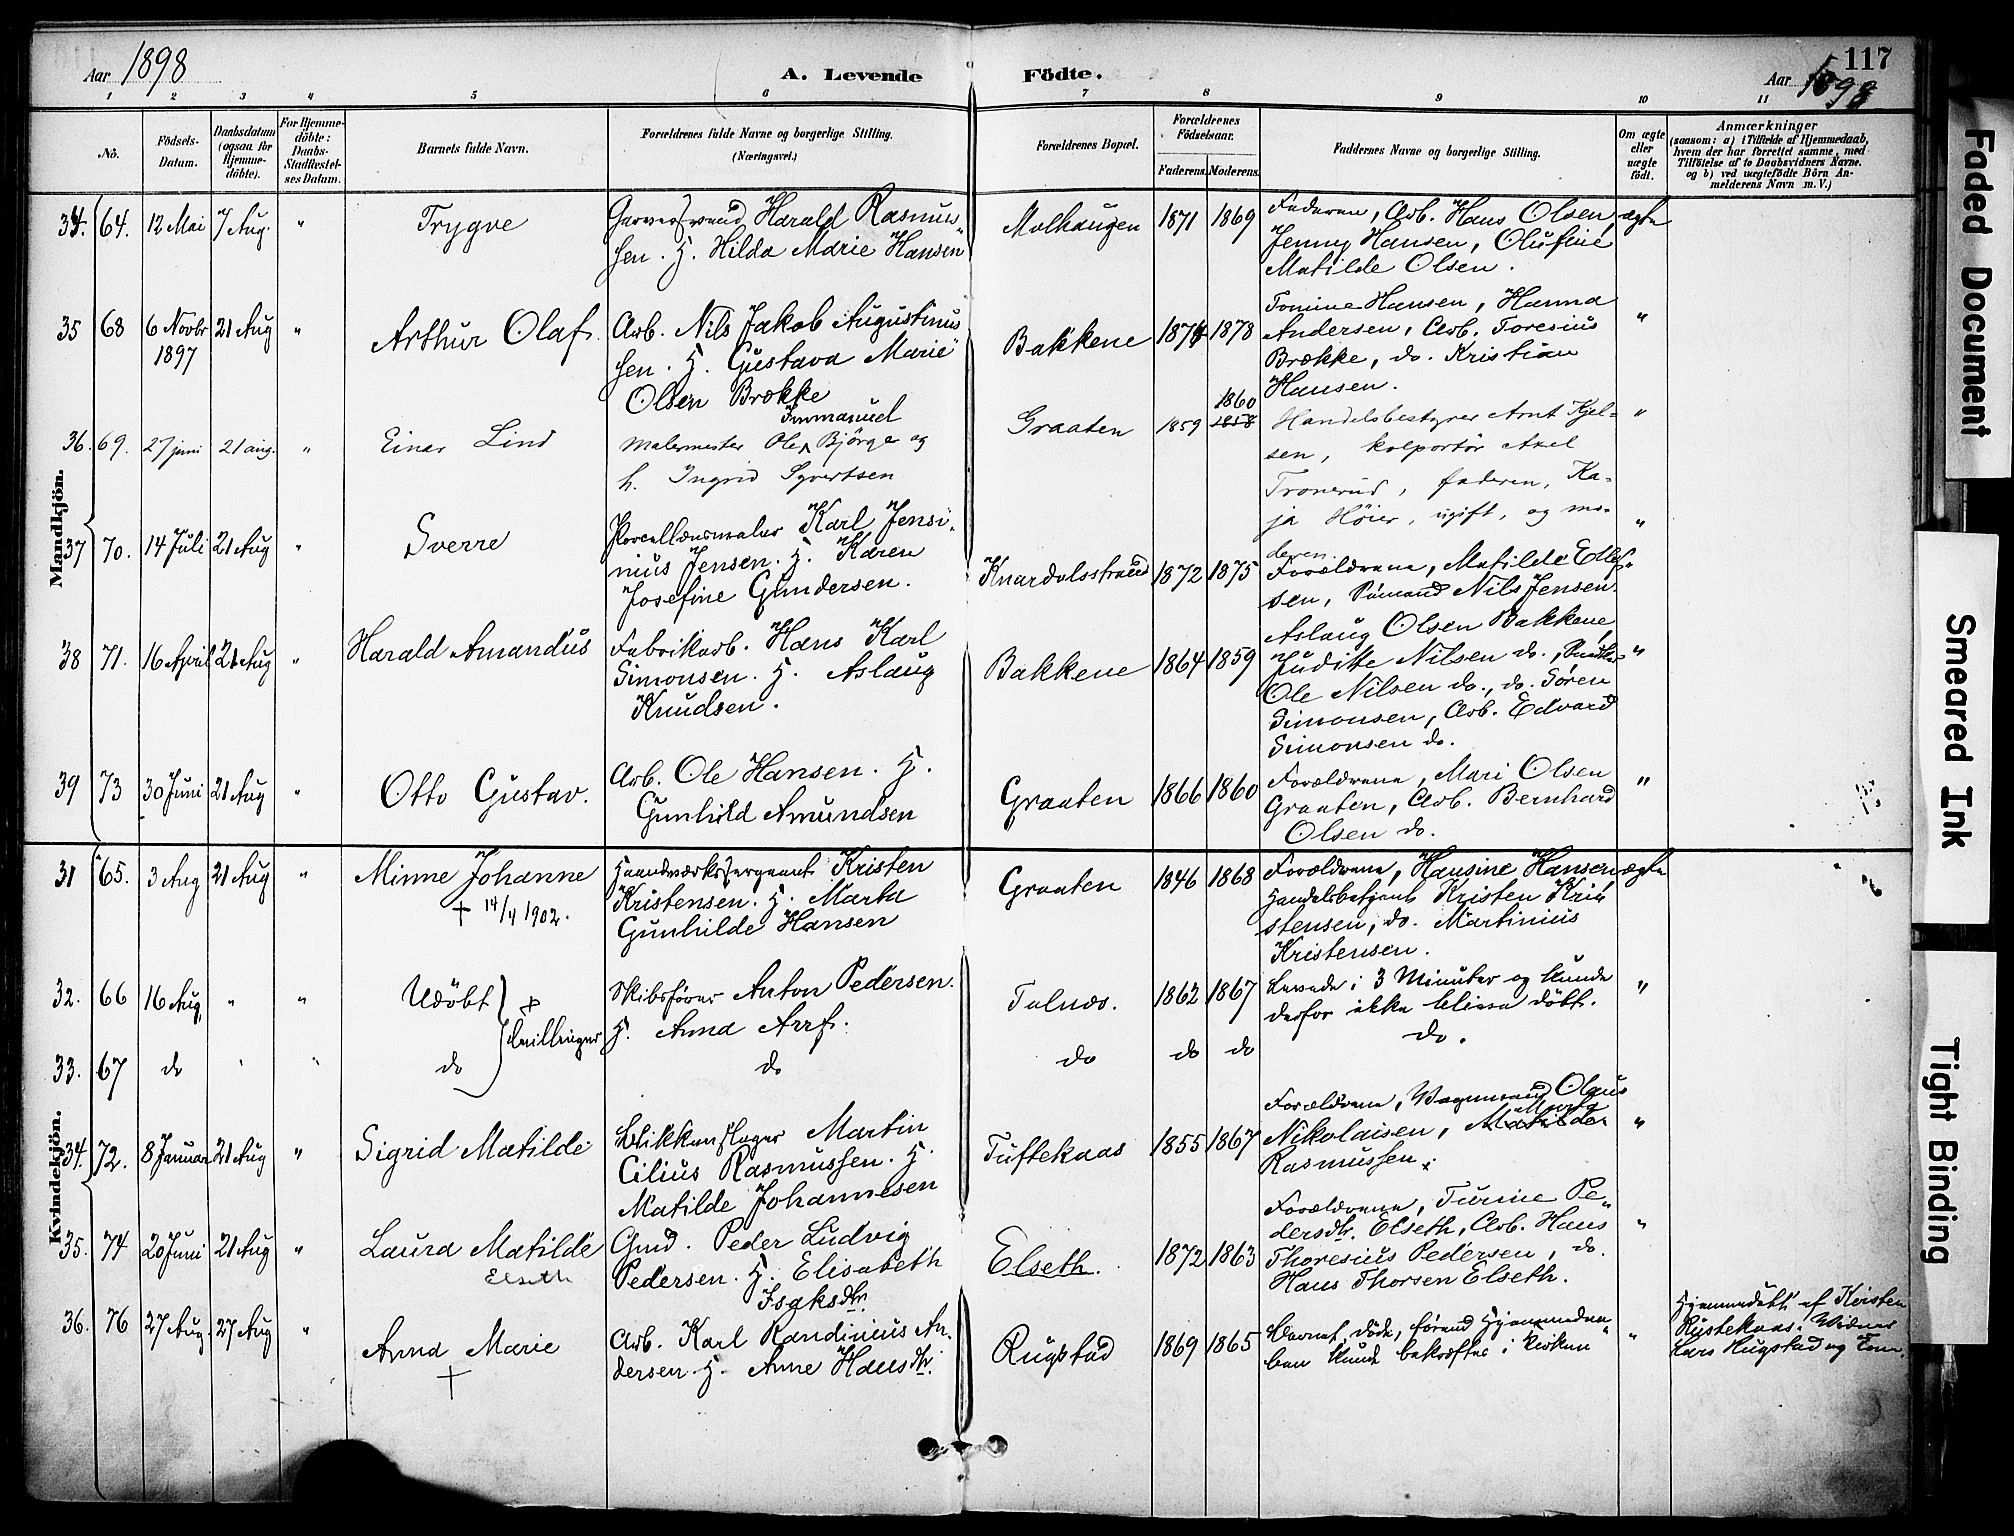 Aar 1898
A. Levende Födte.
117
Aar 1898
1 2 3 4 5 6 7 8 9 10 11
No.
Födsels-Datum.
Daabsdatum (ogsaa for Hjemme-döbte).
For Hjemme-döbte: Daabs-Stadfæstel-ses Datum.
Barnets fulde Navn.
Forældrenes fulde Navne og borgerlige Stilling. (Næringsvei.)
Forældrenes Bopæl.
Forældrenes Födselsaar.
Faderens. Moderens.
Faddernes Navne og borgerlige Stilling.
Om ægte eller uægte födt.
Anmærkninger
(saasom: a) i Tilfælde af Hjemmedaab,
hvem der har forrettet samme, med
Tilföielse af to Daabsvidners Navne.
og b) ved uægtefödte Börn An-
melderens Navn m. V.)
Mandkjön.
34. 64. 12 Mai 7 Aug. " Trygve
Garversvend Harald Rasmus-
sen. H. Hilda Marie Hansen
Molhaugen 1871 1869
Faderen, Arb. Hans Olsen, ægte
Jenny Hansen, Olufine
Matilde Olsen.
35 68 6 Novbr 1897 21 Aug " Arthur Olaf.
Arb. Nils Jakob Augustinus
sen. H. Gustava Marie
Olsen Brække
Bakkene 1874 1878
Tomine Hansen, Hanna "
Andersen, Arb. Toresius
Brække, do. Kristian
Hansen.
36. 69. 27 juni 21 aug. " Einar Lind
Immanuel
Malermester Ole Bjørge og
h. Ingrid Syvertsen
Graaten 1859 1858 1860
Handelsbestyrer Arnt Kjel- "
sen, kolportör Axel
Tronerud, faderen, Ka-
ja Höier, ugift, og mo-
deren.
37 70. 14 Juli 21 Aug " Sverre
Porcellænsmaler Karl Jensi-
nius Jensen. H. Karen
Josefine Gundersen.
Knardalsstrand 1872 1875 "
Forældrene, Matilde Ellef-
sen, Sömand Nils Jensen.
38 71. 16 April 21 Aug " Harald Amandus
Fabrikarb. Hans Karl
Simonsen. H. Aslaug
Knudsen.
Bakkene 1864 1859
Aslaug Olsen Bakkene,
Juditte Nilsen do., "
Ole Nilsen do., do. Sören
Simonsen, Arb. Edvard
Simonsen do.
39 73 30 Juni 21 Aug " Otto Gustav.
Arb. Ole Hansen. H.
Gunhild Amundsen
Graaten 1866 1860
Forældrene, Mari Olsen "
Graaten, Arb. Bernhard
Olsen do.
Kvindekjön.
31 65. 3 Aug 21 Aug " Minne Johanne
+ 14/4 1902.
Haandværkssergeant Kristen
Kristensen. H. Marta
Gunhilde Hansen
Graaten 1846 1868
Forældrene, Hansine Hansen ægte
Handelsbetjent Kristen Kri-
stensen, do. Martinius
Kristensen.
32. 66 16 Aug. " " Udöbt + tvillinger
Skibsförer Anton Pedersen.
H. Anna Arrf.
Tolnæs. 1862 1867
Levede i 3 Minuter og kunde "
derfor ikke blive döbt.
33. 67 do " " do do do do do do.
34. 72. 8 Januar 21 Aug " Sigrid Matilde
Blikkenslager Martin
Cilius Rasmussen. H.
Matilde Johannesen
Tuftekaas 1855 1867
Forældrene, Vognmand Olaus
Nikolaisen, Matilde "
Rasmussen.
35. 74 20 Juni 21 Aug " Laura Matilde
Elseth
Gmd. Peder Ludvig
Pedersen. H. Elisabeth
Isaksdtr.
Elseth. 1872 1863
Forældrene, Turine Pe-
dersdtr. Elseth, Arb. Hans "
Thoresius Pedersen, do.
Hans Thorsen Elseth.
36. 76 27 Aug. 27 Aug " Anna Marie
+
Arb. Karl Randinius An-
dersen H. Anne Hansdtr.
Rugstad 1869 1865
Barnet döde, förend Hjemmedaa- "
ben kunde bekræftes i kirken
Hjemmedöbt af Kirsten
Rustekaas. Vidner
Lars Rugstad og
Faded Document
Smeared Ink
Tight Binding